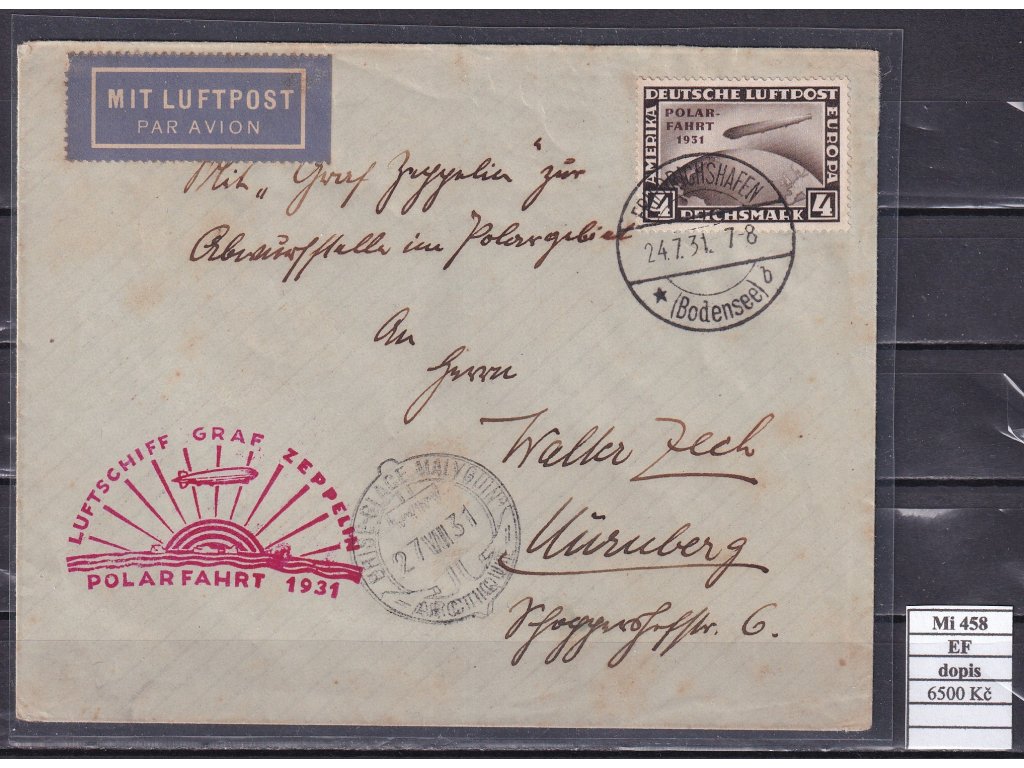 MIT LUFTPOST
PAR AVION
DEUTSCHE LUFTPOST
AMERIKA
EUROPA
POLAR-
FAHRT
1931
4 REICHSMARK 4
FRIEDRICHSHAFEN
24.7.31. 7-8
★ (Bodensee) b
Mit „Graf Zeppelin" zur
Abwurfstelle im Polargebiet
An
Herrn
Walter Zech
Nürnberg
Schoppershofstr. 6.
LUFTSCHIFF GRAF ZEPPELIN
POLARFAHRT 1931
BRISE-GLACE MALYGUIN
27 VII 31
ARCTIQUE
Mi 458
EF
dopis
6500 Kč